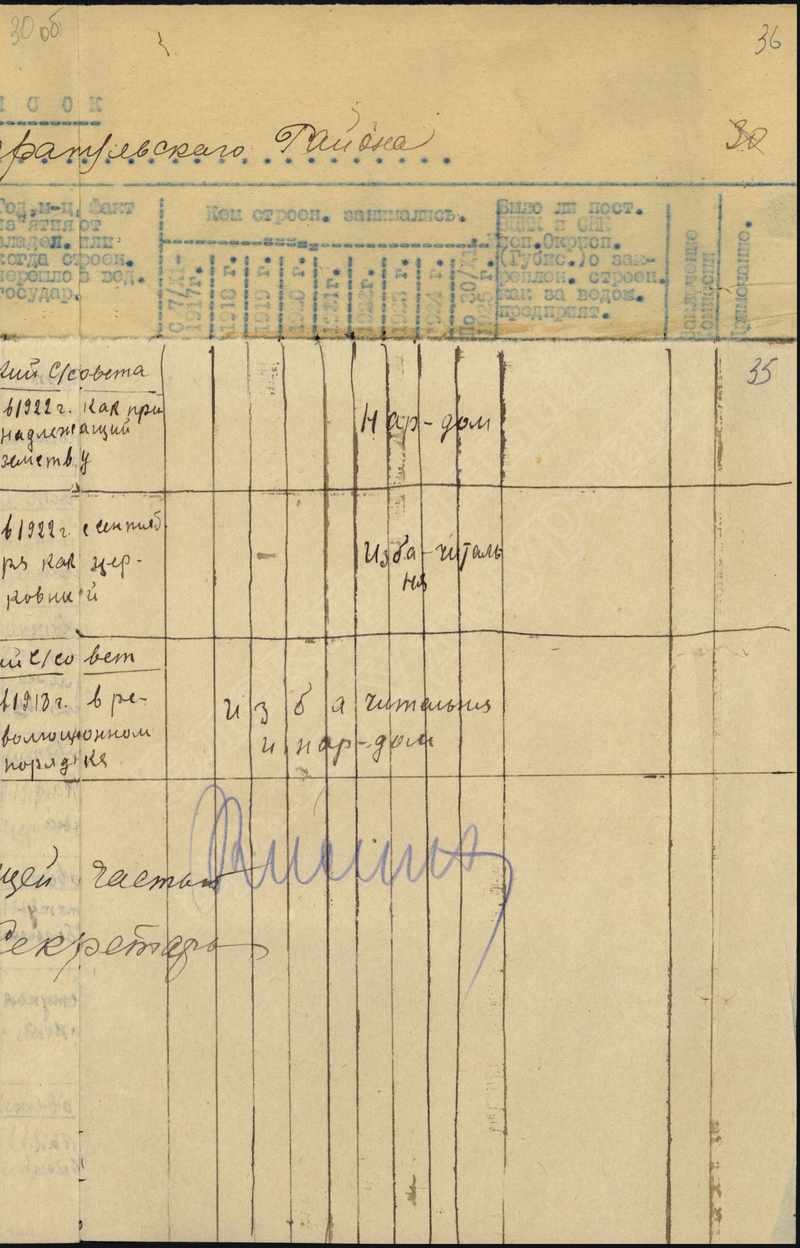 30 об
36
С О К
ратульского Района
30
Год, м-ц, факт
из"ятия от
владел. или
когда строен.
перешло в вед.
государ.
Кем строен. занимались.
С 7/XI-
1917г.
1918 г.
1919 г.
1920 г.
1921г.
1922г.
1923 г.
1924 г.
По 30/XI-
1925 г.
Было ли пост.
ВЦИК и СНК
Исп.Окрисп.
(Губис.)о зак-
реплен. строен.
как за ведом.
предприят.
Заключение
комиссии
Примечание.
кий с/совета
35
в 1922 г. как при
надлежащий
земству
Нар-дом
в 1922 г. сентяб.
ря как цер-
ковный
-
Изба-читаль
ня
ий с/совет
в 1918 г. в ре-
волюционном
порядке
изба читальня
и нар-дом
щей частью
Секретарь